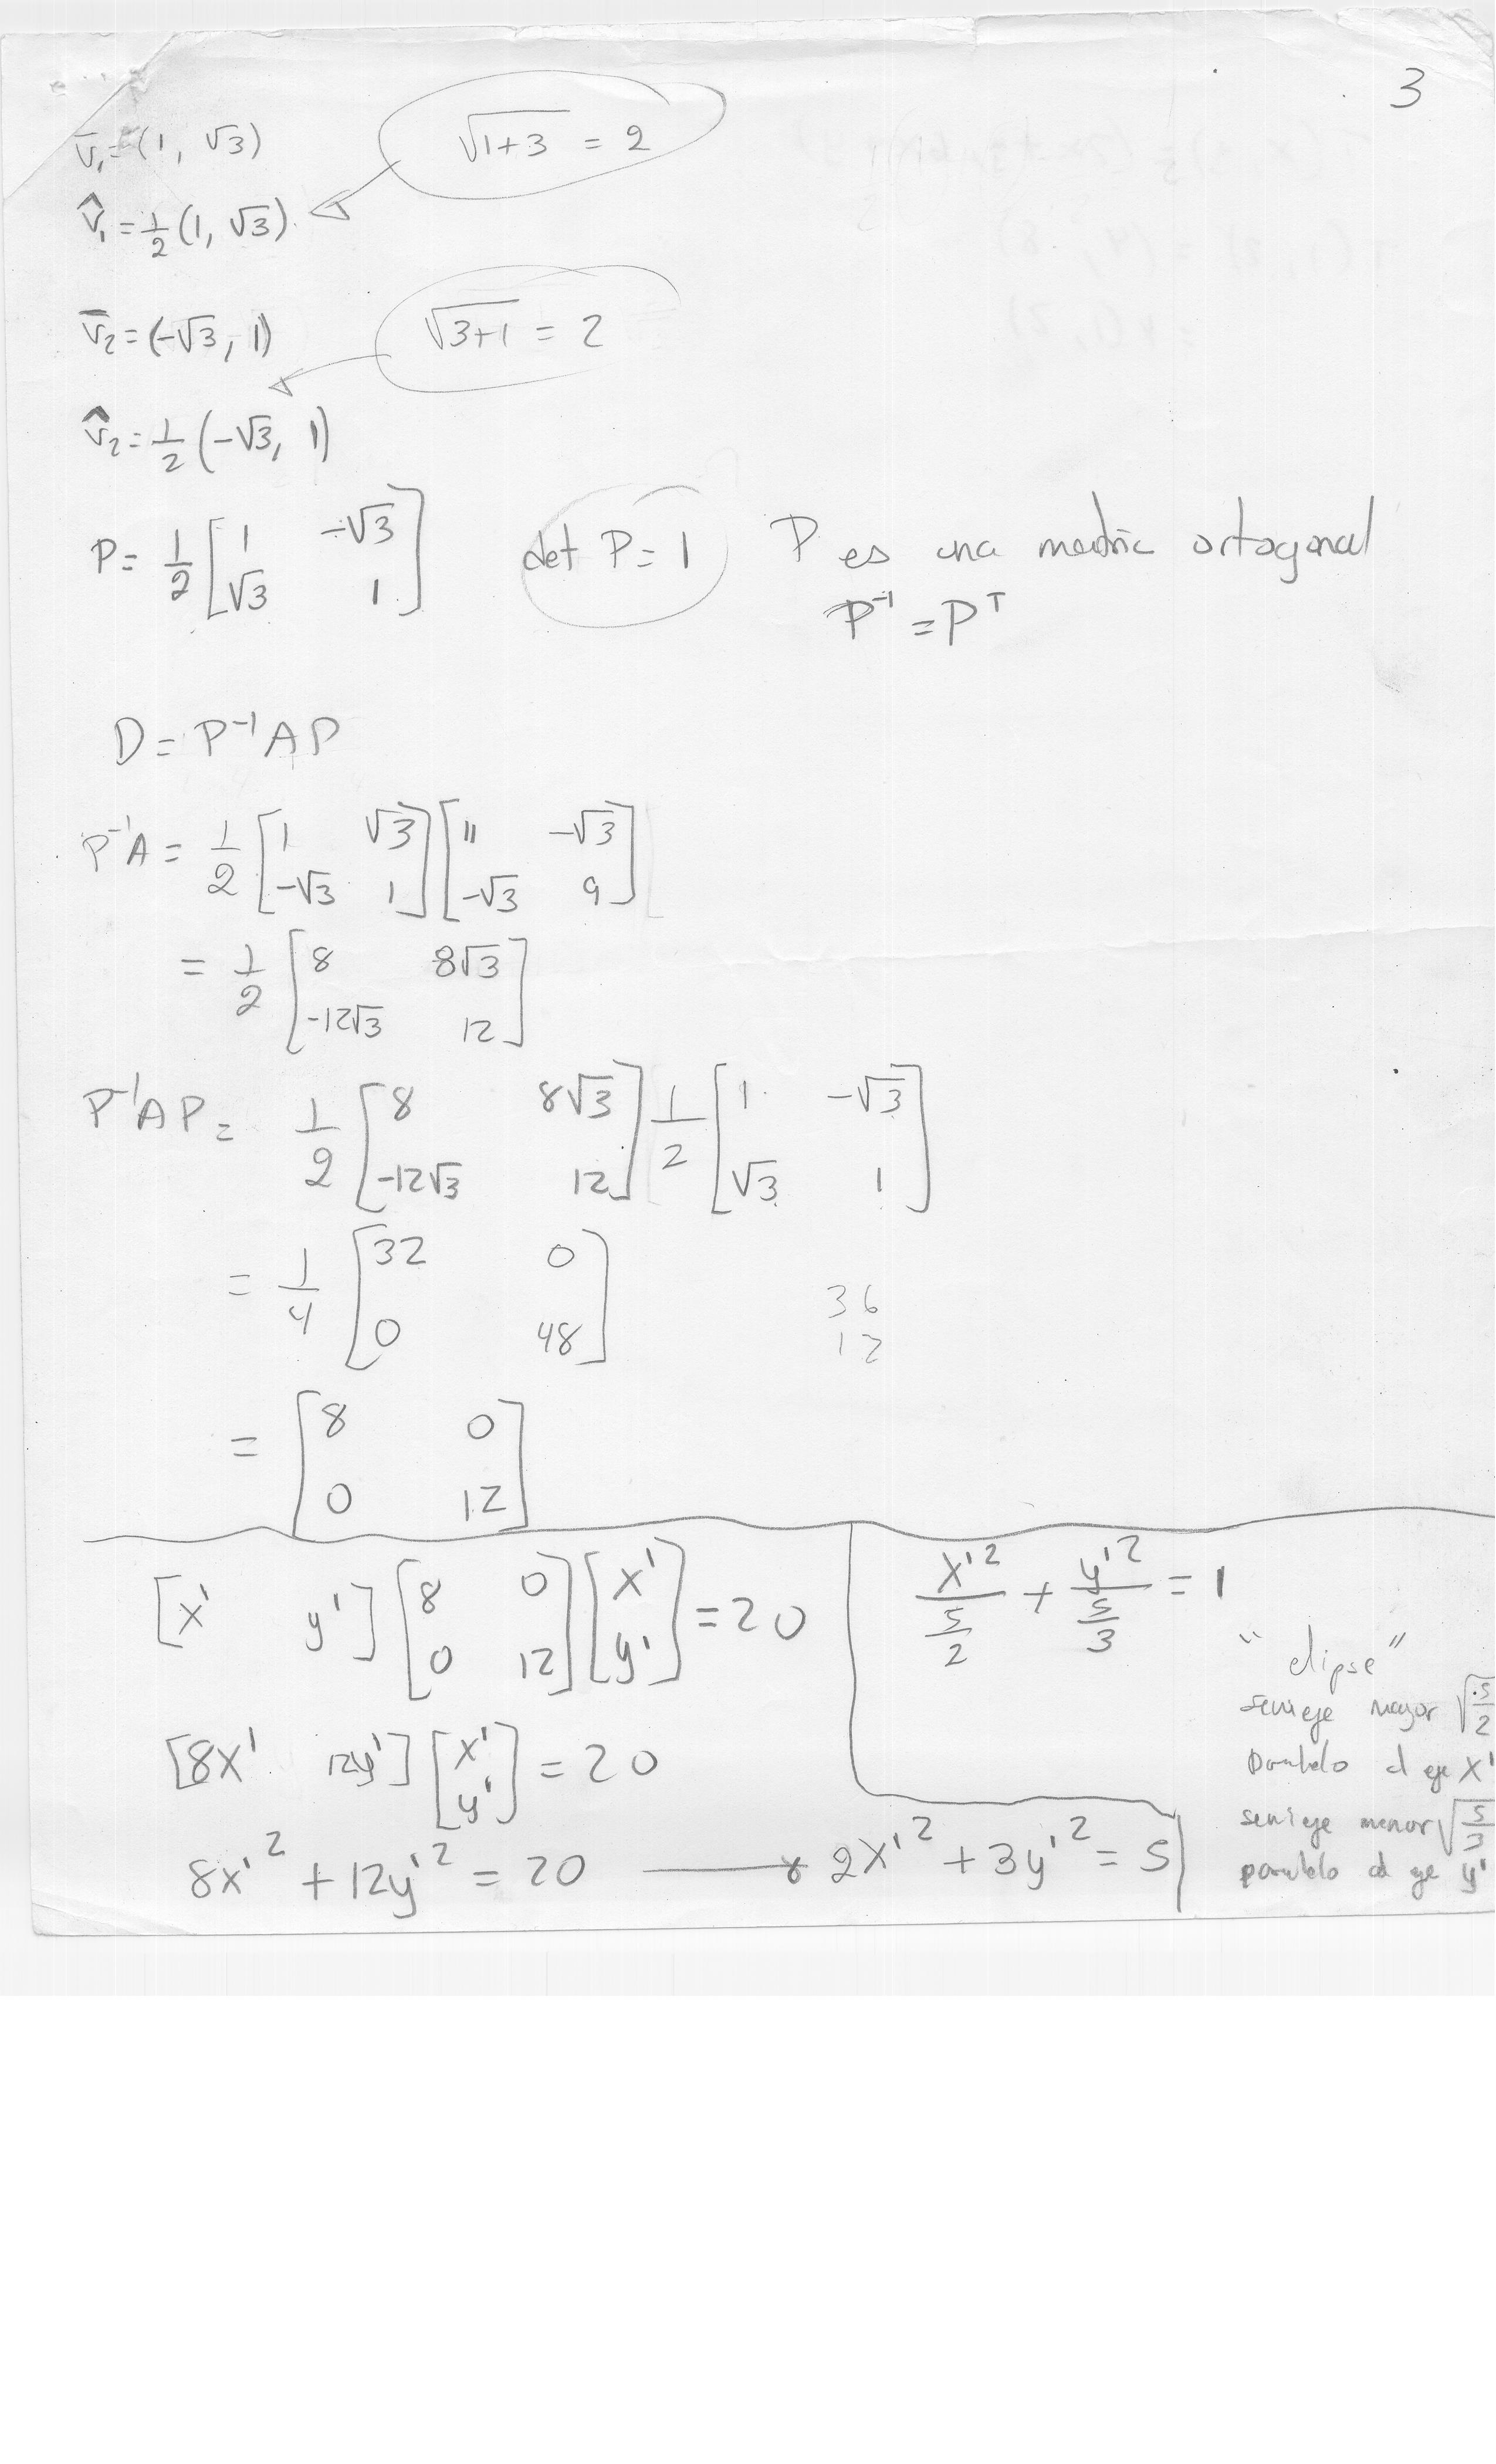 3
v̄₁=(1, √3)
√1+3 = 2
v̂₁=½(1, √3)
v̄₂=(-√3, 1)
√3+1 = 2
v̂₂=½(-√3, 1)
P= ½ [1 -√3; √3 1] det P=1 P es una matriz ortogonal
P⁻¹=Pᵀ
D=P⁻¹AP
P⁻¹A= ½ [1 √3; -√3 1] [11 -√3; -√3 9]
= ½ [8 8√3; -12√3 12]
P⁻¹AP= ½ [8 8√3; -12√3 12] ½ [1 -√3; √3 1]
= ¼ [32 0; 0 48]
36
12
= [8 0; 0 12]
[x' y'] [8 0; 0 12] [x'; y'] =20
[8x' 12y'] [x'; y'] = 20
8x'² + 12y'² = 20 → 2x'² + 3y'² = 5
x'²/(5/2) + y'²/(5/3) = 1
"elipse"
semieje mayor √5/2
paralelo al eje x'
semieje menor √5/3
paralelo al eje y'